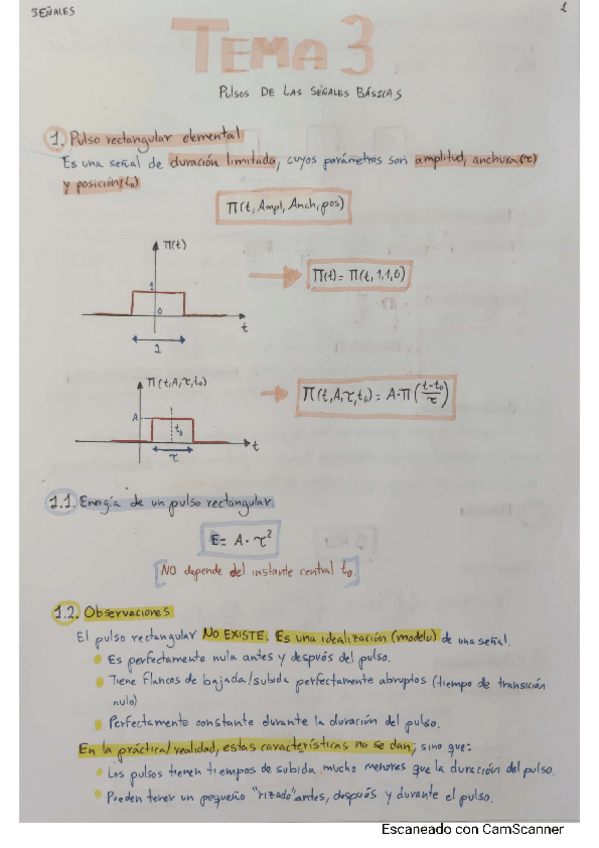 SEÑALES 1
TEMA 3
Pulsos DE LAS SEÑALES BÁSICAS
1. Pulso rectangular elemental
Es una señal de duración limitada, cuyos parámetros son amplitud, anchura (τ)
y posición (t₀)
Π(t, Ampl, Anch, pos)
Π(t)
1
0
t
1
Π(t) = Π(t, 1, 1, 0)
Π(t, A, τ, t₀)
A
t₀
t
τ
Π(t, A, τ, t₀) = A·Π((t-t₀)/τ)
1.1. Energía de un pulso rectangular
E = A · τ²
NO depende del instante central t₀.
1.2. Observaciones
El pulso rectangular NO EXISTE. Es una idealización (modelo) de una señal.
Es perfectamente nula antes y después del pulso.
Tiene flancos de bajada/subida perfectamente abruptos (tiempo de transición
nulo)
Perfectamente constante durante la duración del pulso.
En la práctica/realidad, estas características no se dan, sino que:
Los pulsos tienen tiempos de subida mucho menores que la duración del pulso.
Pueden tener un pequeño "rizado" antes, después y durante el pulso.
Escaneado con CamScanner